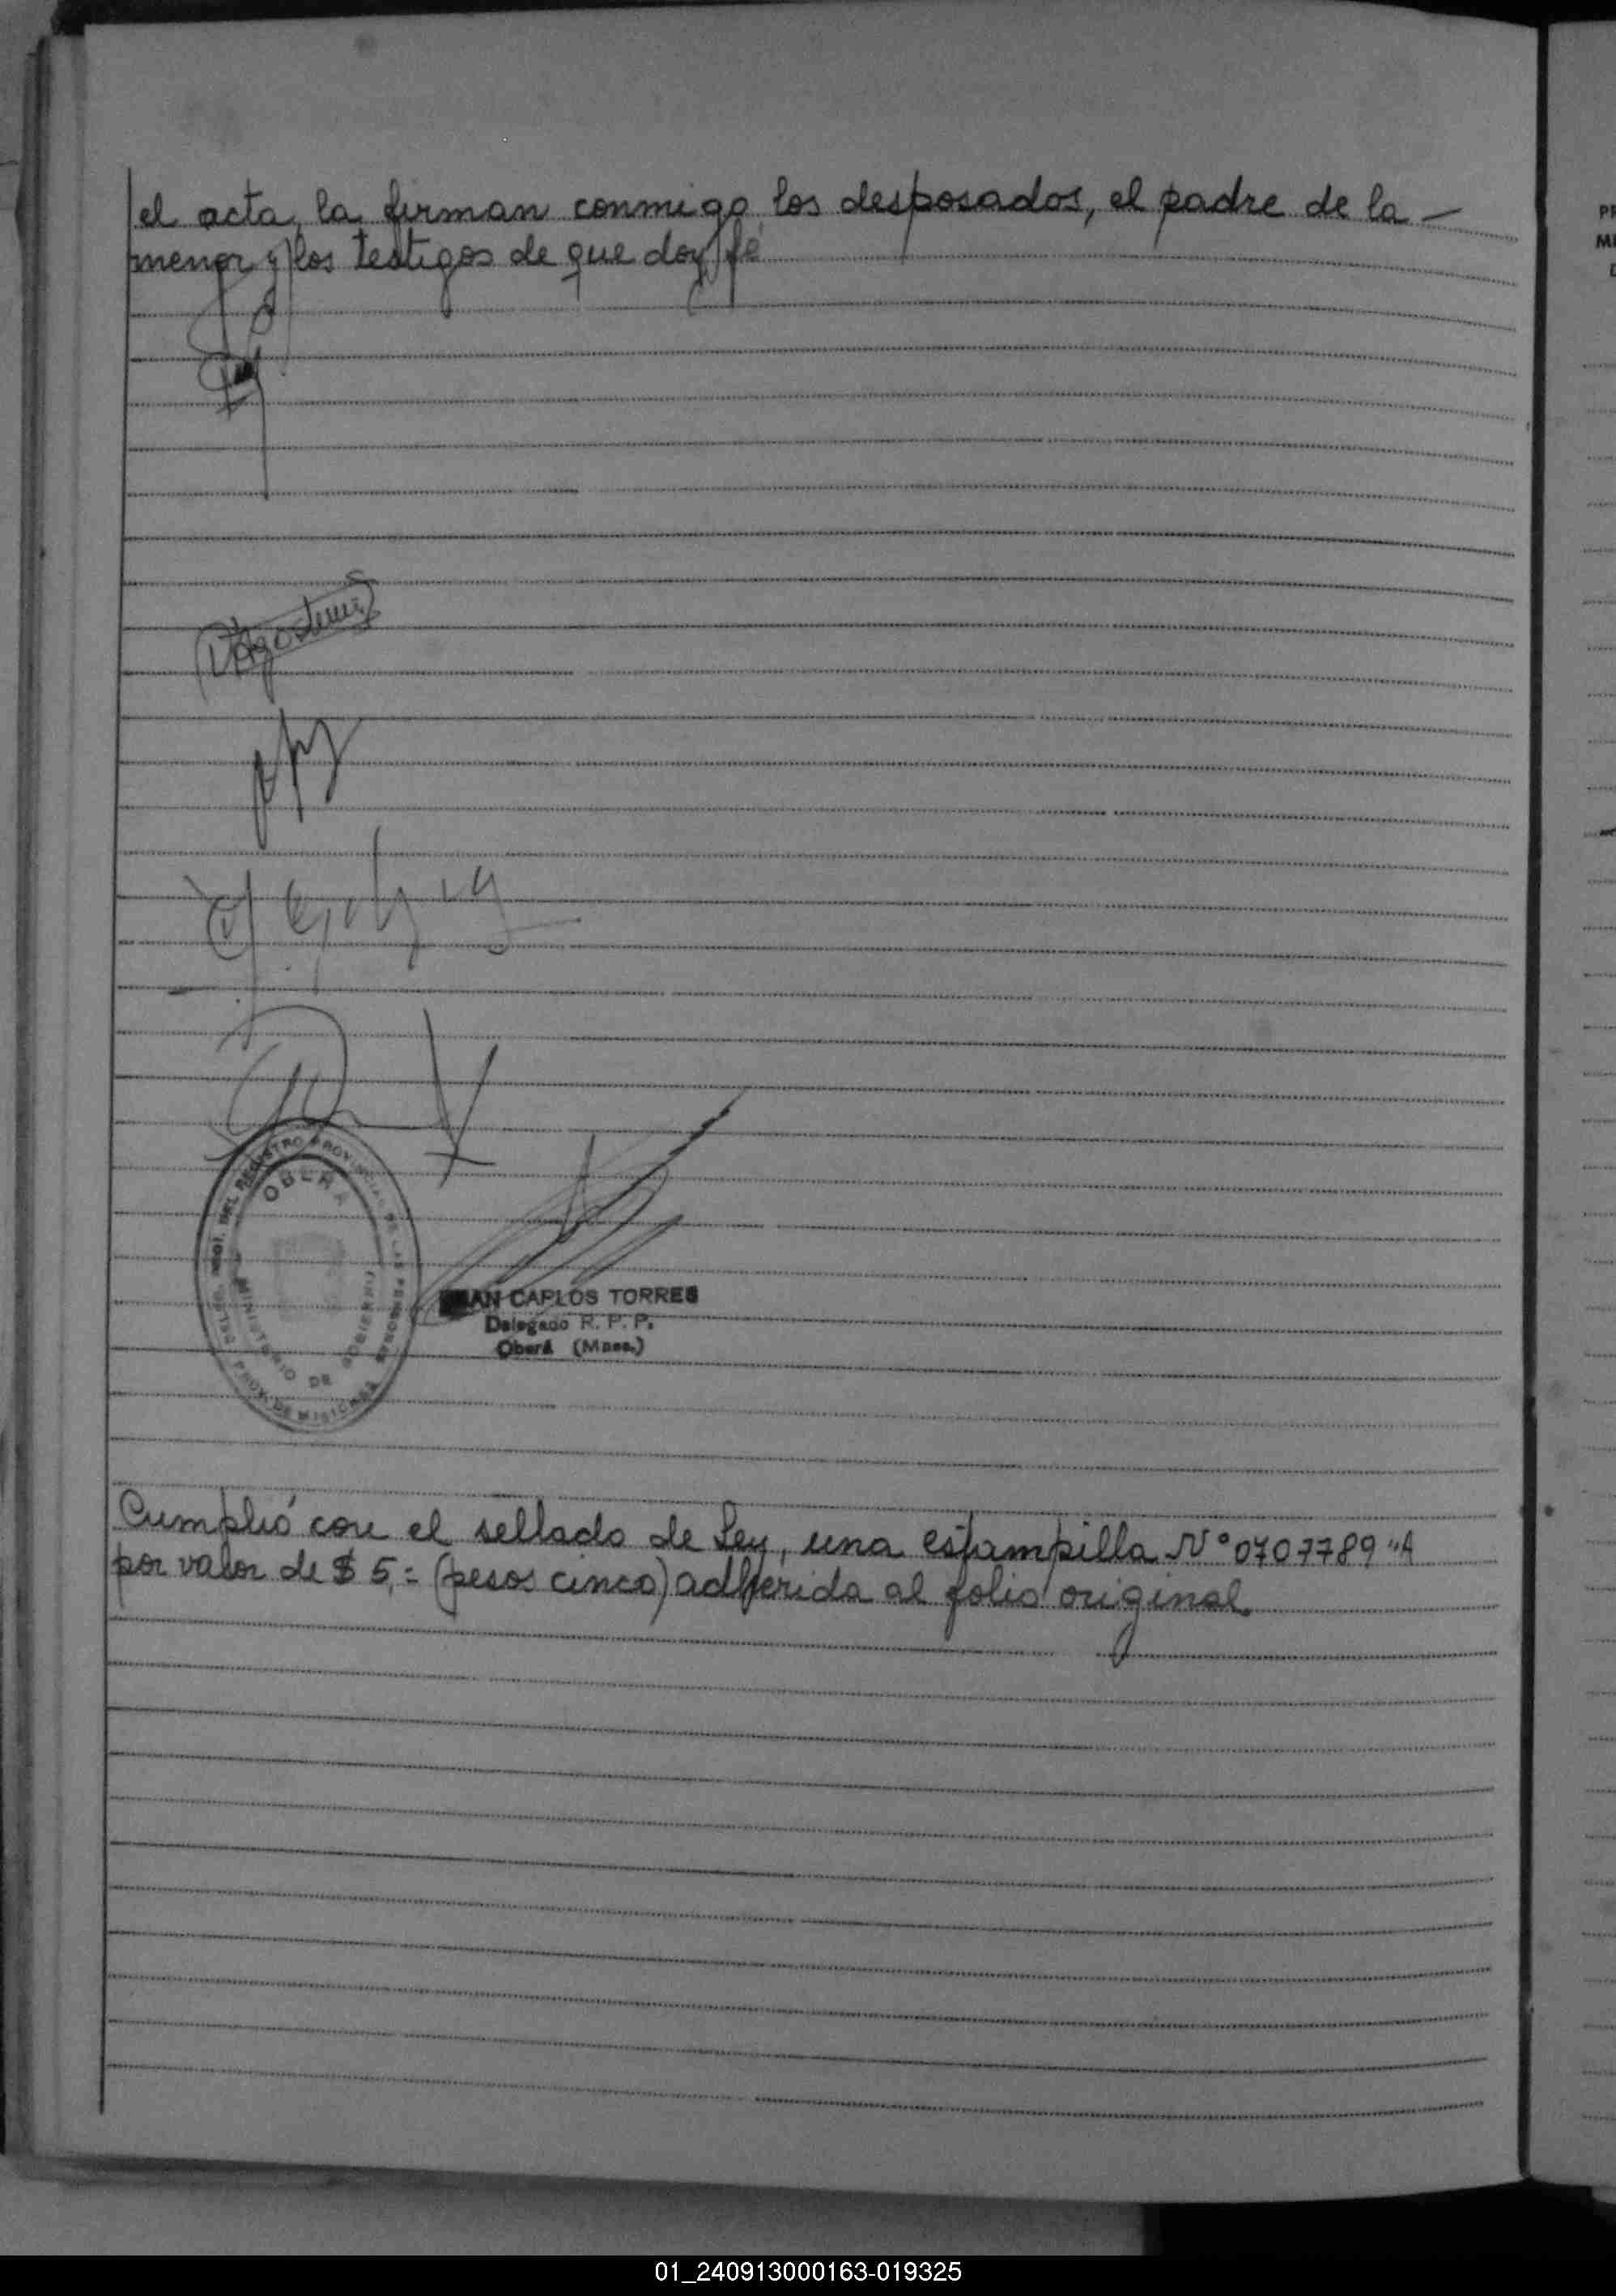 el acta, la firman conmigo los desposados, el padre de la —
menor y los testigos de que doy fé
D'Agostini
DEL REGISTRO PROVINCIAL DE LAS PERSONAS
OBERÁ
MINISTERIO DE GOBIERNO
PROV. DE MISIONES
AN CARLOS TORRES
Delegado R. P. P.
Oberá (Mnes.)
Cumplió con el sellado de Ley, una estampilla Nº 0707789 "A
por valor de $ 5,= (pesos cinco) adherida al folio original.
01_240913000163-019325